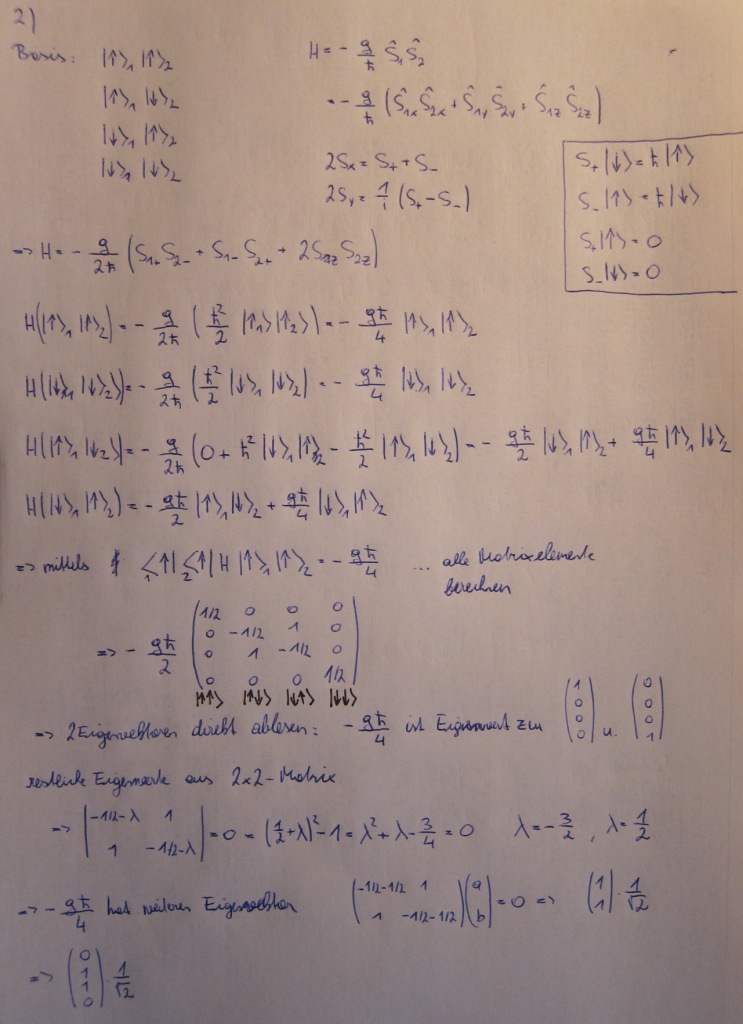 2)
Basis: |↑⟩₁ |↑⟩₂
|↑⟩₁ |↓⟩₂
|↓⟩₁ |↑⟩₂
|↓⟩₁ |↓⟩₂
H = - g/ħ Ŝ₁ Ŝ₂
= - g/ħ (Ŝ₁ₓ Ŝ₂ₓ + Ŝ₁ᵧ Ŝ₂ᵧ + Ŝ₁z Ŝ₂z)
2Sₓ = S₊ + S₋
2Sᵧ = 1/i (S₊ - S₋)
S₊|↓⟩ = ħ|↑⟩
S₋|↑⟩ = ħ|↓⟩
S₊|↑⟩ = 0
S₋|↓⟩ = 0
=> H = - g/2ħ (S₁₊ S₂₋ + S₁₋ S₂₊ + 2S₁z S₂z)
H(|↑⟩₁ |↑⟩₂) = - g/2ħ (ħ²/2 |↑₁⟩|↑₂⟩) = - għ/4 |↑⟩₁ |↑⟩₂
H(|↓⟩₁ |↓⟩₂) = - g/2ħ (ħ²/2 |↓⟩₁ |↓⟩₂) = - għ/4 |↓⟩₁ |↓⟩₂
H(|↑⟩₁ |↓⟩₂) = - g/2ħ (0 + ħ² |↓⟩₁ |↑⟩₂ - ħ²/2 |↑⟩₁ |↓⟩₂) = - għ/2 |↓⟩₁ |↑⟩₂ + għ/4 |↑⟩₁ |↓⟩₂
H(|↓⟩₁ |↑⟩₂) = - għ/2 |↑⟩₁ |↓⟩₂ + għ/4 |↓⟩₁ |↑⟩₂
=> mittels ₁⟨↑| ₂⟨↑| H |↑⟩₁ |↑⟩₂ = - għ/4 ... alle Matrixelemente
berechnen
=> - għ/2 (1/2 0 0 0
0 -1/2 1 0
0 1 -1/2 0
0 0 0 1/2)
|↑↑⟩ |↑↓⟩ |↓↑⟩ |↓↓⟩
=> 2 Eigenvektoren direkt ablesen: - għ/4 ist Eigenwert zu (1 0 0 0) u. (0 0 0 1)
restliche Eigenwerte aus 2x2-Matrix
=> |-1/2-λ 1
1 -1/2-λ| = 0 = (1/2+λ)² - 1 = λ² + λ - 3/4 = 0 λ = - 3/2 , λ = 1/2
=> - għ/4 hat weiteren Eigenvektor (-1/2-1/2 1
1 -1/2-1/2) (a b) = 0 => (1 1) · 1/√2
=> (0 1 1 0) · 1/√2